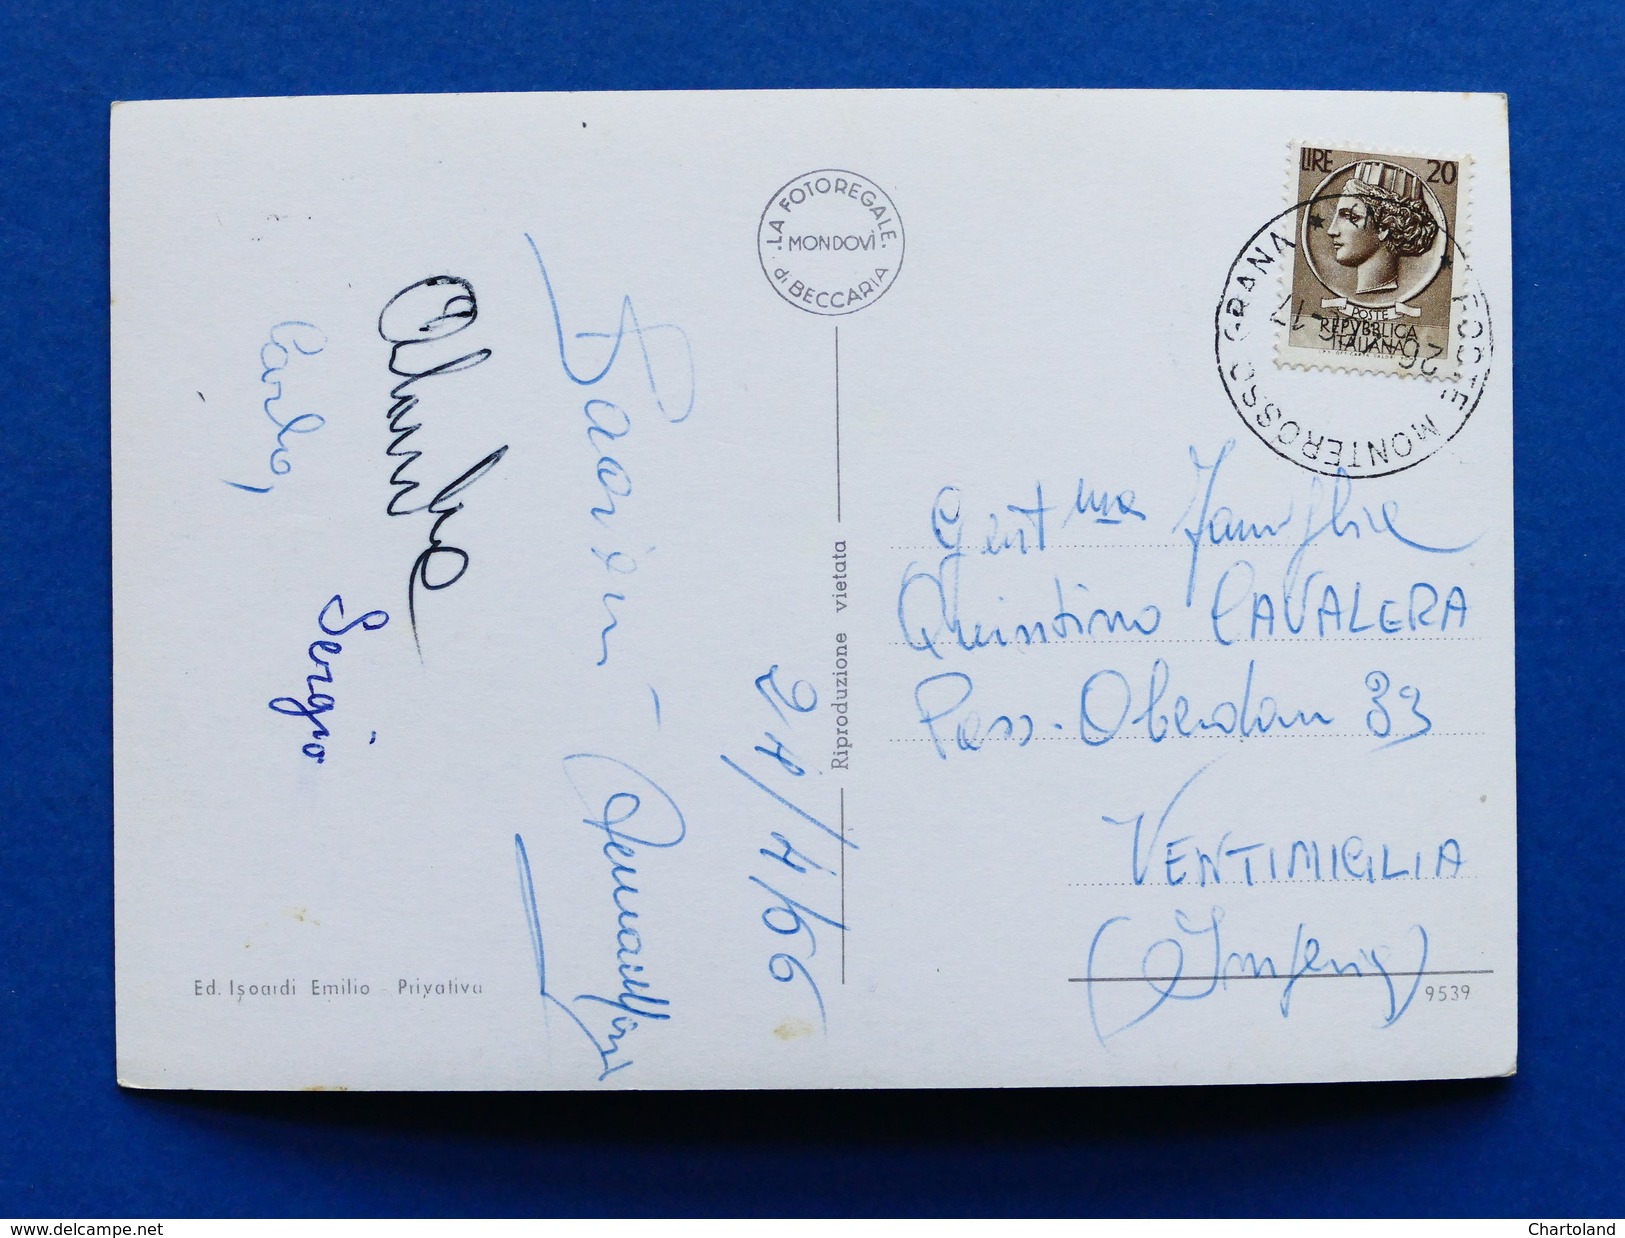 LA FOTOREGALE
MONDOVÌ
di BECCARIA
LIRE 20
POSTE
REPVBBLICA
ITALIANA
POSTE MONTEROSSO GRANA
Carlo,
Sergio
24/7/66
Riproduzione vietata
Gent.ma Famiglia
Quintino CAVALERA
Pass. Oberdan 33
VENTIMIGLIA
(Imperia)
9539
Ed. Isoardi Emilio - Privativa
www.delcampe.net
Chartoland